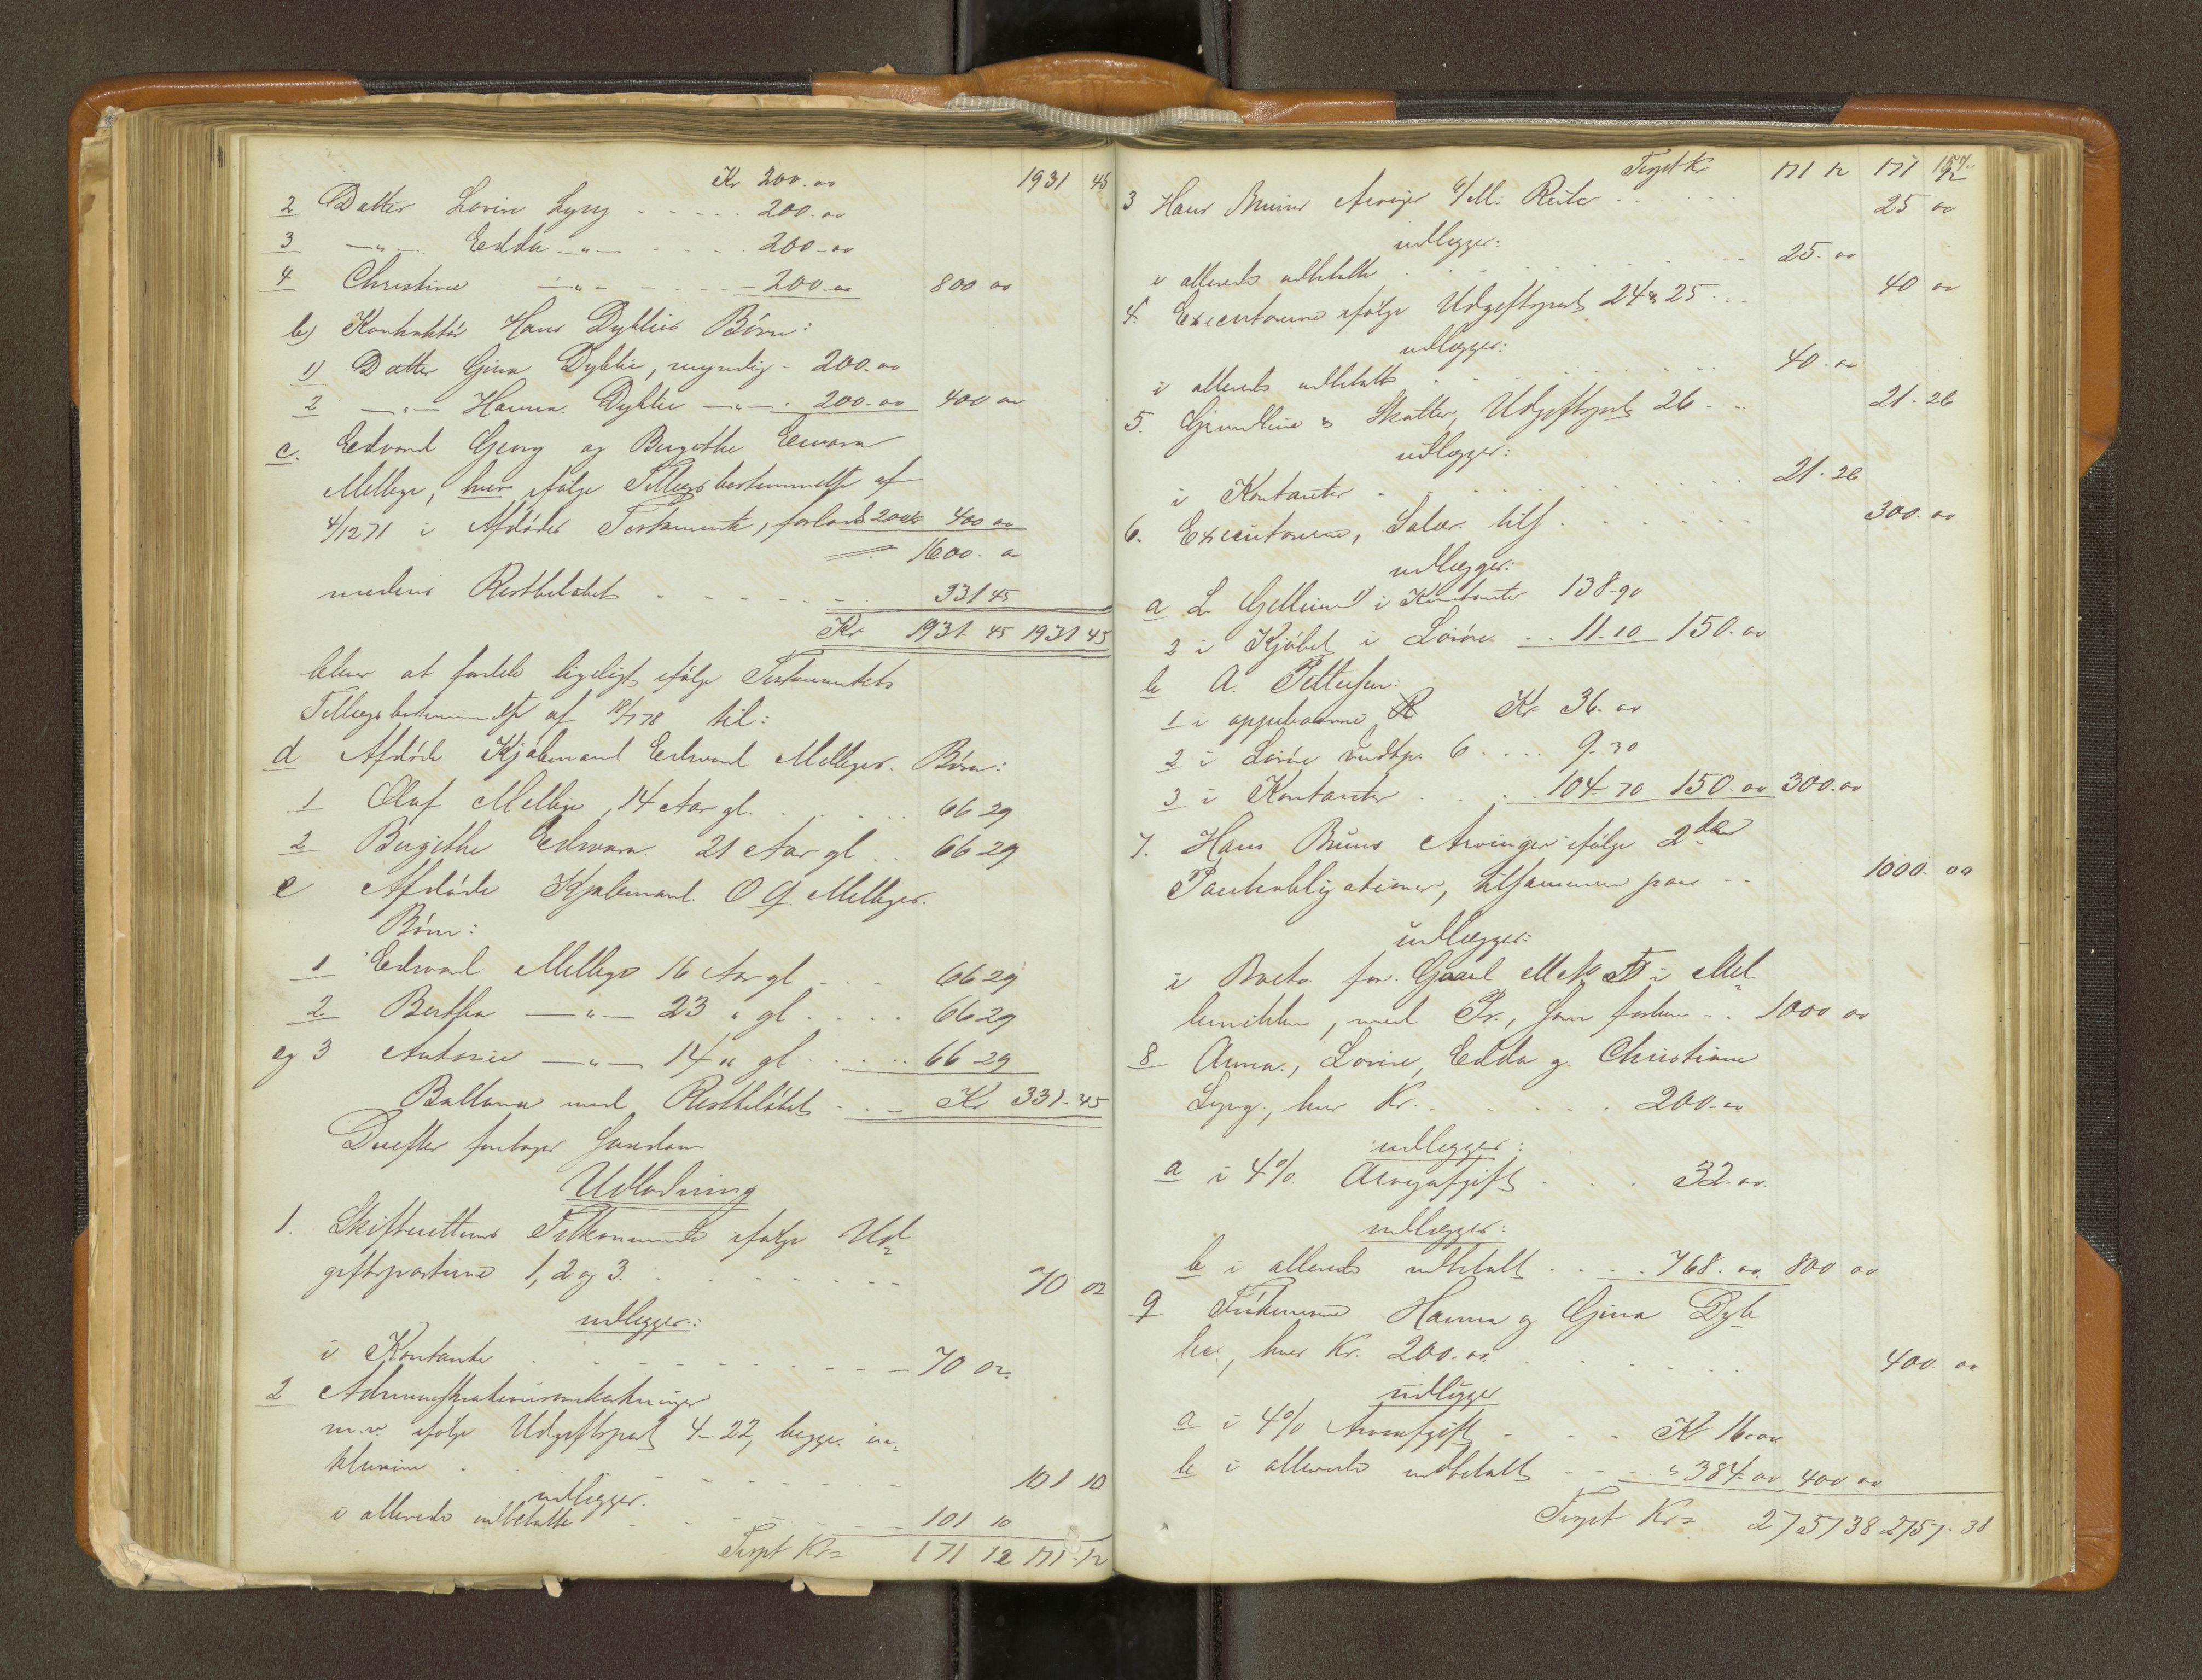 Kr 200.00 1931 45
2 Datter Lovise Lysg - - - - - 200.00
3 —"— Edda —"— - - - - 200-00
4 Christine —"— - - - - 200-00 800 00
b) Hans Dyblies Børn:
1) Datter Gina Dyblie, myndig - 200.00
2 —"— Hanna Dyblie —"— 200-00 400 00
c. Edvard Georg og Birgithe Edvara
Mellbye, hver ifølge Tillægsbestemmelse af
4/12 71 i Afdødes Testamente, forlods 200 Kr 400 00
1600. 00
medens Restbeløbet - - - - - - 331 45
Kr 1931. 45 1931 45
bliver at fordele ligeligt ifølge Testamentets
Tillægsbestemmelse af 18/7 78 til:
d Afdøde Kjøbmand Edvard Mellbyes Børn:
1 Oluf Mellbye, 14 Aar gl. . . . . . 66 29
2 Birgithe Edvara 21 Aar gl . . 66 29
e Afdøde Kjøbmand O G Mellbyes
Børn:
1 Edvard Mellbye 16 Aar gl - - - 66 29
2 Berthea —"— 23 " gl . . . . 66 29
og 3 Antonie —"— 14 " gl . . . . 66 29
Ballance med Restbeløbet - - - Kr 331-45
Derefter foretoges saadan
Udlodning
1. Skifterettens Tilkommende ifølge Ud-
giftsposterne 1, 2 og 3. . . . . . . . 70 02
udlægges:
i Kontanter . . . . . . . . . 70 02.
2 Administrationsomkostninger
m.v. ifølge Udgiftspost 4-22, begge in-
klusive . . . . . . . . 101 10
udlægges.
i allerede udbetalte - - - - - 101 10
Trspt Kr= 171 12 171.12
157.
Trspt Kr 171 12 171 12
3 Hans Bruns Arvinger v/ M: Reiter . . . . 25 00
udlægges:
i allerede udbetalte . . . . . . . . . 25. 00
4. Executorerne ifølge Udgiftspost 24 & 25 . . . 40 00
udlægges:
i allerede udbetalt . . . . . . . . . 40. 00
5. Grundleie & Skatter, Udgiftspost 26 - . . 21. 26
udlægges:
i Kontanter . . . . . . . . . . 21. 26
6. Executorerne, Salær tils . . . . . . 300. 00
udlægges:
a L 1) i Kontanter 138-90
2 i Kjøbet i Løsøre . . 11-10 150. 00
b A. Pettersen:
1 i oppebaarne Kr 36. 00
2 i Løsøre Indtp. 6 . . . . 9. 30
3 i Kontanter . . . . 104-70 150. 00 300. 00
7. Hans Bruns Arvinger ifølge 2de
Panteobligationer, tilsammen paa - - 1000. 00
udlægges:
i Boets for. Gaard M No i Mel-
lemikken, med Pr., som forhen - . 1000 00
8 Anna, Lovise, Edda og Christiane
Lysg, hver Kr. . . . . . . 200-00
udlægges:
a i 4% Arveafgift . . . 32. 00.
udlægges:
b i allerede udbetalt . . . . 768. 00. 800 00
9 Frøknerne Hanna og Gina Dyb-
lie, hver Kr. 200.00. . . . . . . 400. 00
udlægges
a i 4% Arveafgift - - - Kr 16.00
b i allerede udbetalt - - - " 384-00 400 00
Trspt Kr= 2757 38 2757. 38